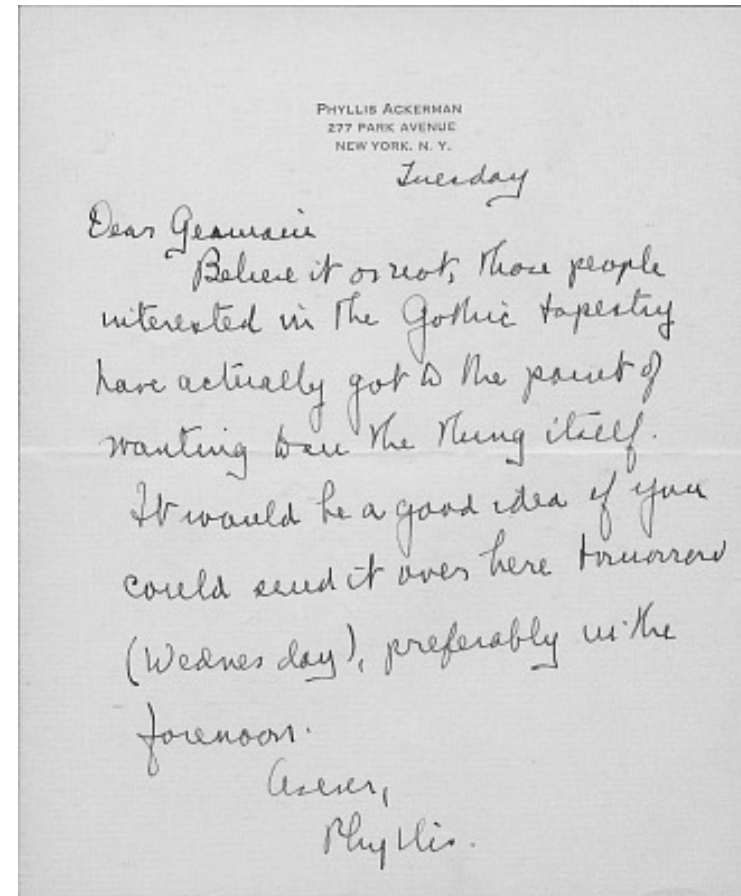 PHYLLIS ACKERMAN
277 PARK AVENUE
NEW YORK, N. Y.
Tuesday
Dear Germain
Believe it or not, those people
interested in the Gothic tapestry
have actually got to the point of
wanting to see the thing itself.
It would be a good idea if you
could send it over here tomorrow
(Wednesday), preferably in the
forenoon.
As ever,
Phyllis.